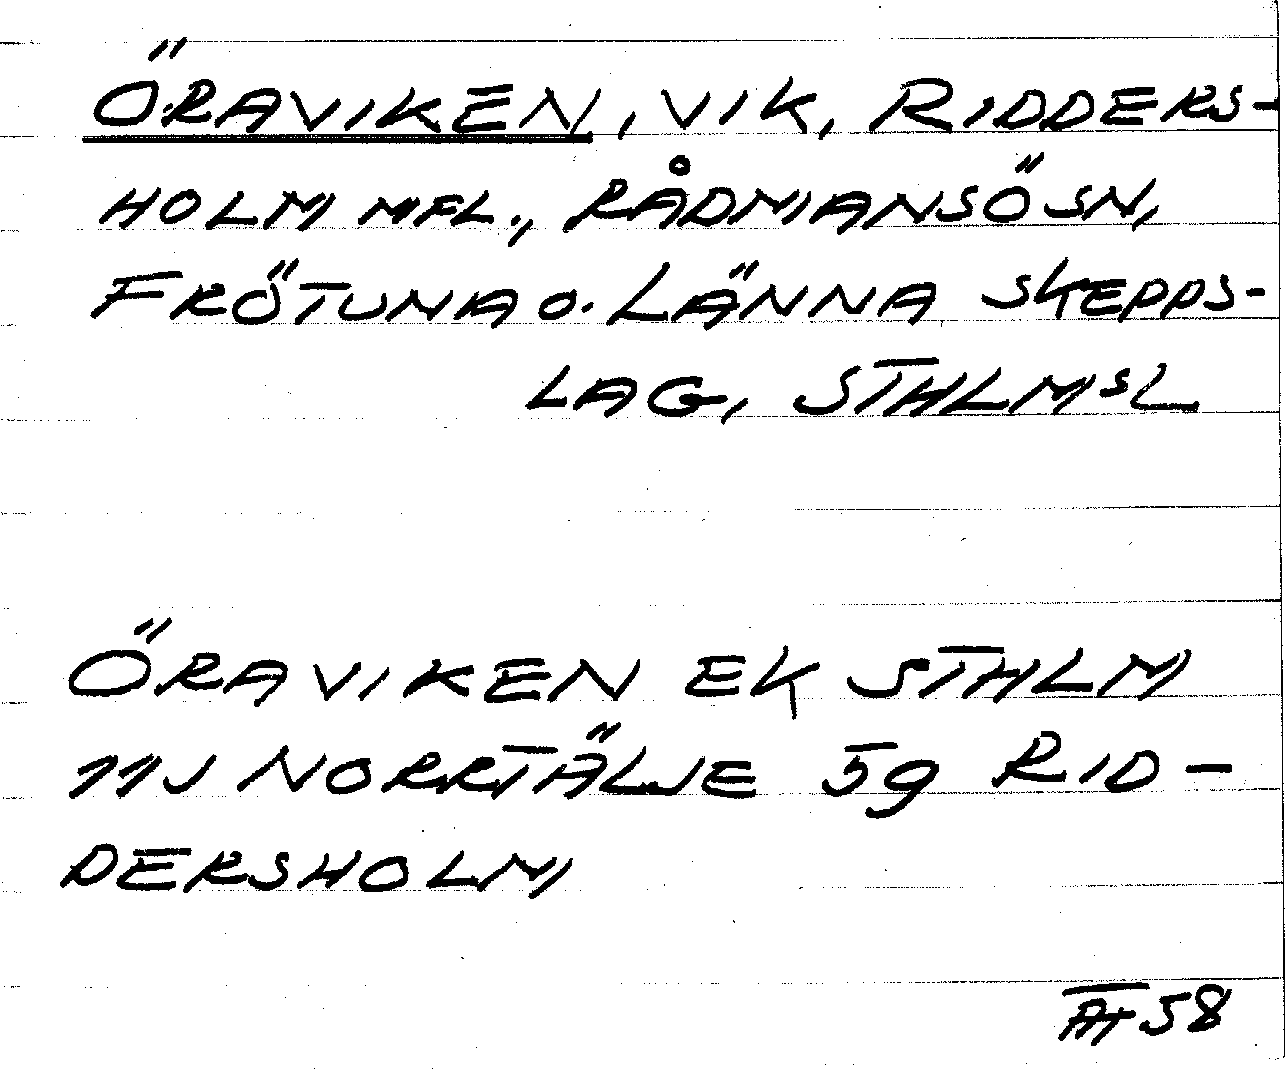 ÖRAVIKEN, VIK, RIDDERS-
HOLM MFL., RÅDMANSÖ SN,
FRÖTUNA O. LÄNNA SKEPPS-
LAG, STHLMSL
ÖRAVIKEN EK STHLM
11J NORRTÄLJE 5g RID-
DERSHOLM
58